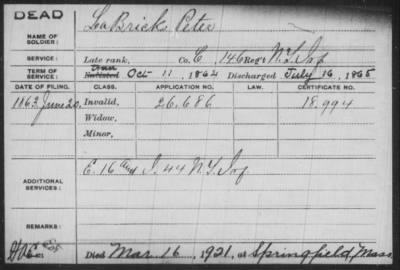 DEAD
NAME OF SOLDIER: La Brick, Peter
SERVICE: Late rank, Co. C, 146 Reg't N.Y. Inf
TERM OF SERVICE: Enlisted Oct 11, 1862 Discharged July 16, 1865
DATE OF FILING. CLASS. APPLICATION NO. LAW. CERTIFICATE NO.
1863 June 20, Invalid, 26,686 18,994
Widow,
Minor,
ADDITIONAL SERVICES: E. 16 and I. 44 N.Y. Inf
REMARKS:
Died Mar. 16, 1921, at Springfield, Mass